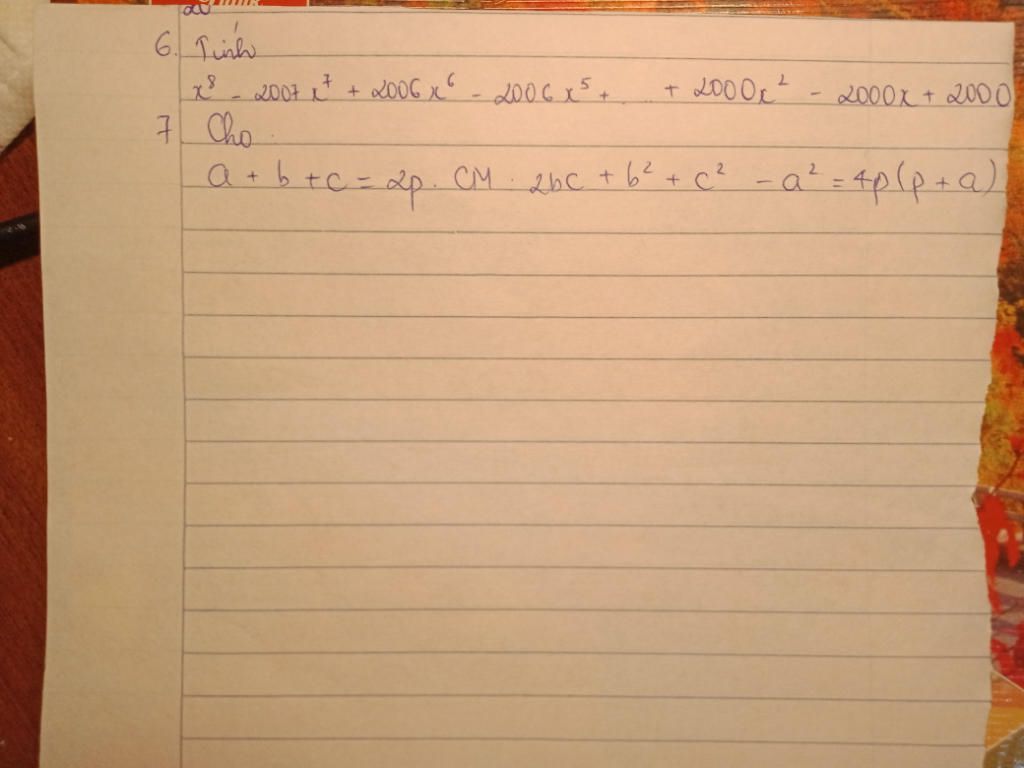 6. Tính
x⁸ - 2007x⁷ + 2006x⁶ - 2006x⁵ + ... + 2000x² - 2000x + 2000
7 Cho
a + b + c = 2p. CM. 2bc + b² + c² - a² = 4p(p + a)